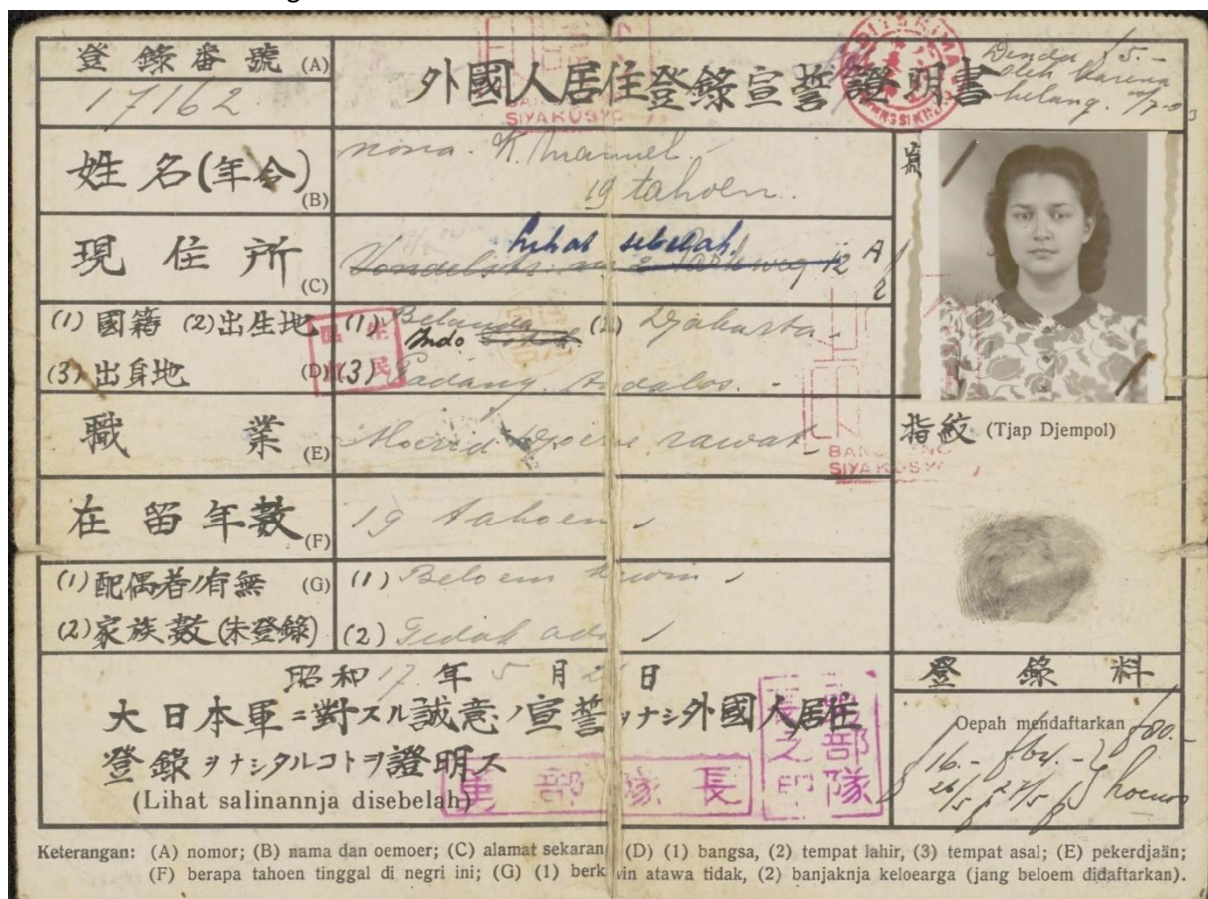 登錄番號 (A)
17162
外國人居住登錄宣誓證明書
Denda f 5.-
oleh karena
hilang.
BAN
SIYAKUSYO
姓名(年令) (B)
nona. K. Manuel.
19 tahoen.
現住所 (C)
lihat sebelah.
12 A
(1) 國籍 (2) 出生地
(1) Belanda (2) Djakarta
Indo
(3) 出身地 (D)
(3) Padang. Andalas. -
住民
職業 (E)
Moerid Djoeroe rawat
BANDUNG
SIYAKUSYO
指紋 (Tjap Djempol)
在留年數 (F)
19 tahoen
(1) 配偶者ノ有無 (G)
(1) Beloem kawin
(2) 家族數(未登錄)
(2) Tidak ada
昭和17年5月2 日
大日本軍ニ對スル誠意ノ宣誓ヲナシ外國人居住
登錄ヲナシタルコトヲ證明ス
(Lihat salinannja disebelah)
部隊長
部隊
長之印
登錄料
Oepah mendaftarkan f80.-
f16.- f64.-
26/5 27/5
Keterangan: (A) nomor; (B) nama dan oemoer; (C) alamat sekaran (D) (1) bangsa, (2) tempat lahir, (3) tempat asal; (E) pekerdjaän;
(F) berapa tahoen tinggal di negri ini; (G) (1) berk win atawa tidak, (2) banjaknja keloearga (jang beloem didaftarkan).